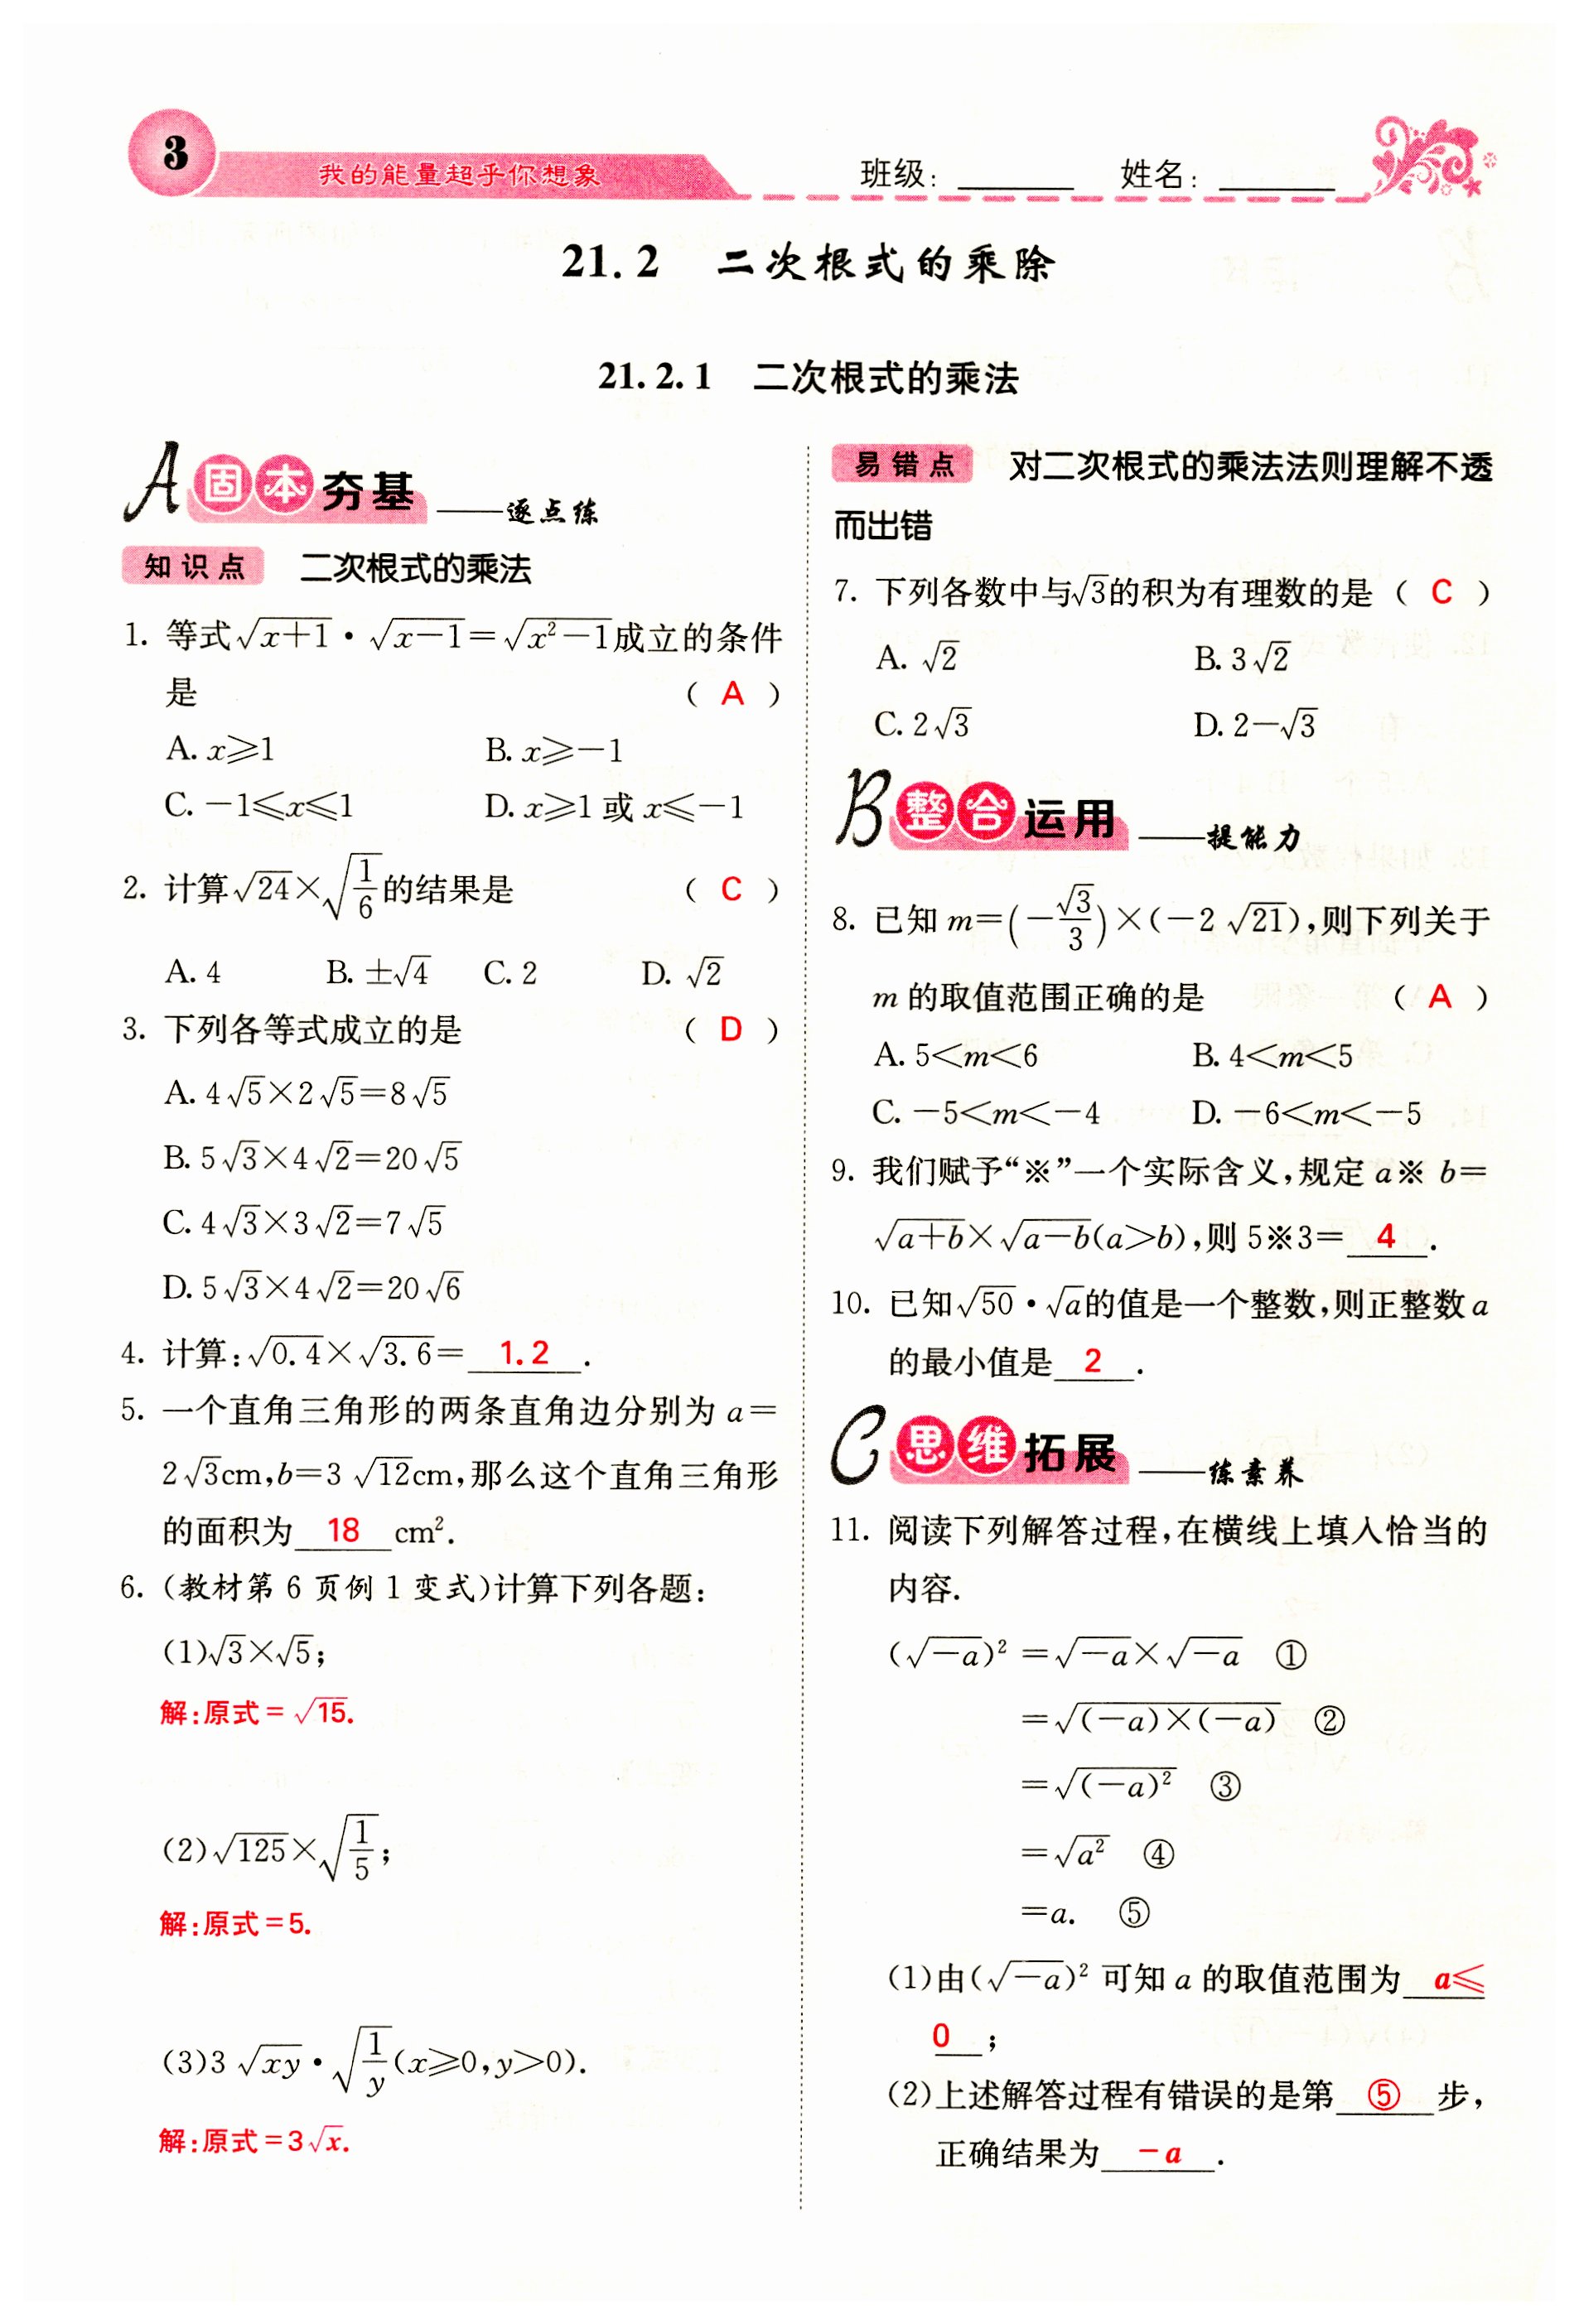 3
我的能量超乎你想象
班级：______ 姓名：______
21.2 二次根式的乘除
21.2.1 二次根式的乘法
A 固本夯基 ——逐点练
知识点 二次根式的乘法
1. 等式√(x+1)·√(x-1)=√(x²-1)成立的条件
是 （ A ）
A. x⩾1 B. x⩾-1
C. -1⩽x⩽1 D. x⩾1 或 x⩽-1
2. 计算√24×√(1/6)的结果是 （ C ）
A. 4 B. ±√4 C. 2 D. √2
3. 下列各等式成立的是 （ D ）
A. 4√5×2√5=8√5
B. 5√3×4√2=20√5
C. 4√3×3√2=7√5
D. 5√3×4√2=20√6
4. 计算:√0.4×√3.6= 1.2 .
5. 一个直角三角形的两条直角边分别为 a=
2√3cm,b=3√12cm,那么这个直角三角形
的面积为 18 cm².
6. (教材第 6 页例 1 变式)计算下列各题:
(1)√3×√5;
解:原式=√15.
(2)√125×√(1/5);
解:原式=5.
(3)3√(xy)·√(1/y)(x⩾0,y>0).
解:原式=3√x.
易错点 对二次根式的乘法法则理解不透
而出错
7. 下列各数中与√3的积为有理数的是（ C ）
A. √2 B. 3√2
C. 2√3 D. 2-√3
B 整合运用 ——提能力
8. 已知 m=(-√3/3)×(-2√21),则下列关于
m 的取值范围正确的是 （ A ）
A. 5<m<6 B. 4<m<5
C. -5<m<-4 D. -6<m<-5
9. 我们赋予“※”一个实际含义,规定 a※b=
√(a+b)×√(a-b)(a>b),则 5※3= 4 .
10. 已知√50·√a的值是一个整数,则正整数 a
的最小值是 2 .
C 思维拓展 ——练素养
11. 阅读下列解答过程,在横线上填入恰当的
内容.
(√(-a))²=√(-a)×√(-a) ①
=√((-a)×(-a)) ②
=√((-a)²) ③
=√(a²) ④
=a. ⑤
(1)由(√(-a))²可知 a 的取值范围为 a⩽
0 ;
(2)上述解答过程有错误的是第 ⑤ 步,
正确结果为 -a .